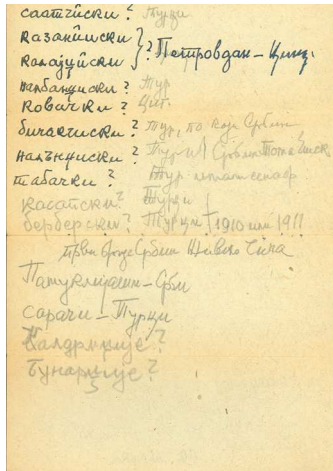 саатчиски? Турци
казаниски
калајџиски } ? Петровдан – Цинц.
налбациски? Тур
ковачки? Циг.
бичакчиски? Тур, по који Србин
налънциски? Тур и Србин
табачки? Тур
касапски? Турци
берберски? Турци } 1910 или 1911
први Србин
Папуклијаши – Срби
сарачи – Турци
Калдрмџије?
Бунарџије?